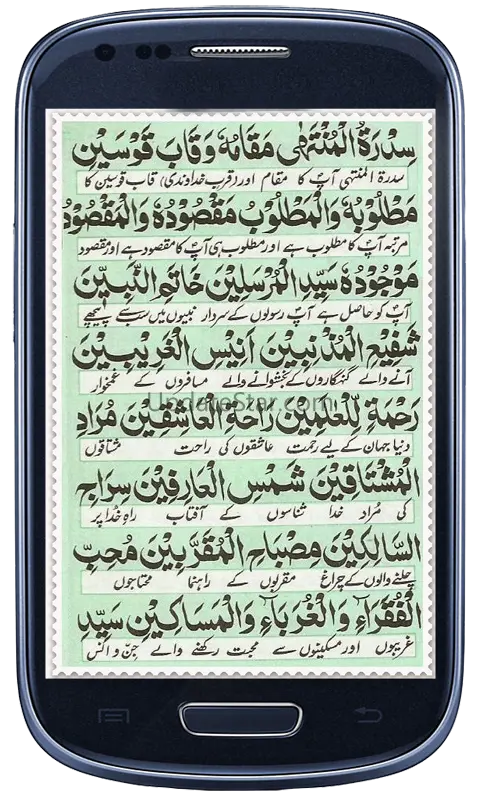 سِدْرَةُ الْمُنْتَهٰى مَقَامُهٗ وَقَابَ قَوْسَيْنِ
سدرۃ المنتہیٰ آپؐ کا مقام اور (قرب خداوندی) قاب قوسین کا
مَطْلُوْبُهٗ وَالْمَطْلُوْبُ مَقْصُوْدُهٗ وَالْمَقْصُوْدُ
مرتبہ آپؐ کا مطلوب ہے اور مطلوب ہی آپؐ کا مقصود ہے اور مقصود
مَوْجُوْدُهٗ سَيِّدِ الْمُرْسَلِيْنَ خَاتِمِ النَّبِيّٖنَ
آپؐ کو حاصل ہے آپؐ رسولوں کے سردار نبیوں میں سب سے پیچھے
شَفِيْعِ الْمُذْنِبِيْنَ اَنِيْسِ الْغَرِيْبِيْنَ
آنے والے گنہگاروں کے بخشوانے والے مسافروں کے غمخوار
رَحْمَةٍ لِّلْعٰلَمِيْنَ رَاحَةِ الْعَاشِقِيْنَ مُرَادِ
UpdateStar.com
دنیا جہان کے لیے رحمت عاشقوں کی راحت مشتاقوں
الْمُشْتَاقِيْنَ شَمْسِ الْعَارِفِيْنَ سِرَاجِ
کی مُراد خدا شناسوں کے آفتاب راہِ خُدا پر
السَّالِكِيْنَ مِصْبَاحِ الْمُقَرَّبِيْنَ مُحِبِّ
چلنے والوں کے چراغ مقربوں کے راہنما محتاجوں
الْفُقَرَآءِ وَالْغُرَبَآءِ وَالْمَسَاكِيْنِ سَيِّدِ
غریبوں اور مسکینوں سے محبت رکھنے والے جِنّ و انس